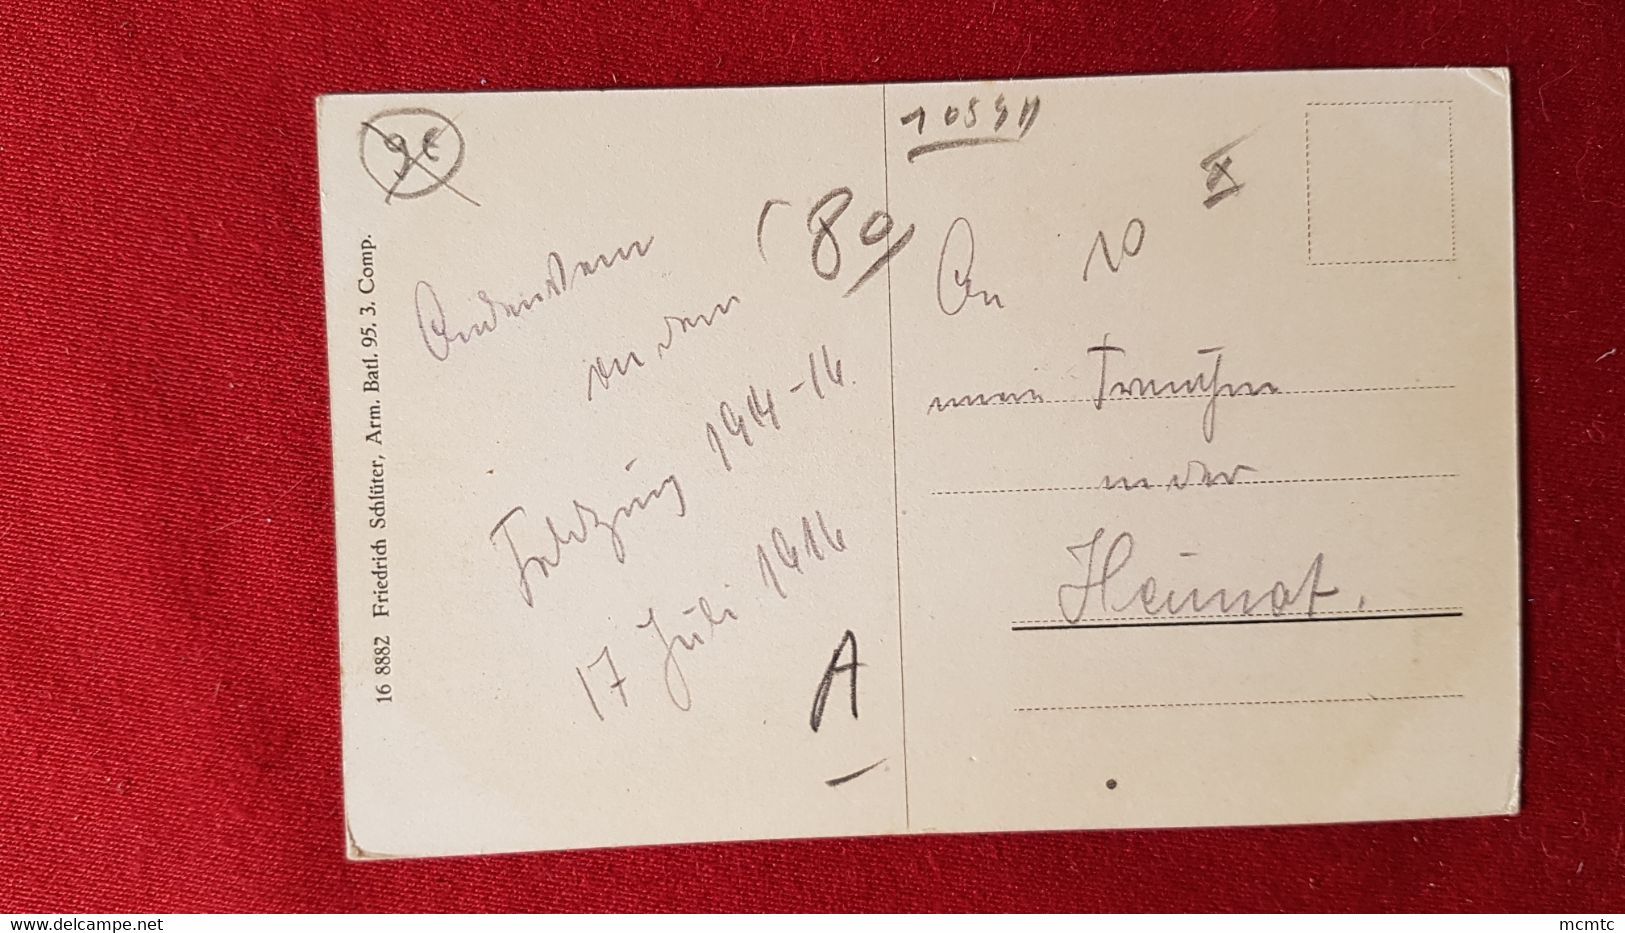 16 8882 Friedrich Schlüter, Arm. Batl. 95. 3. Comp.
9€
Andenken
an den
Feldzug 1914-16.
17 Juli 1916
80
A
An
mein
in der
Heimat.
10
mcmtc